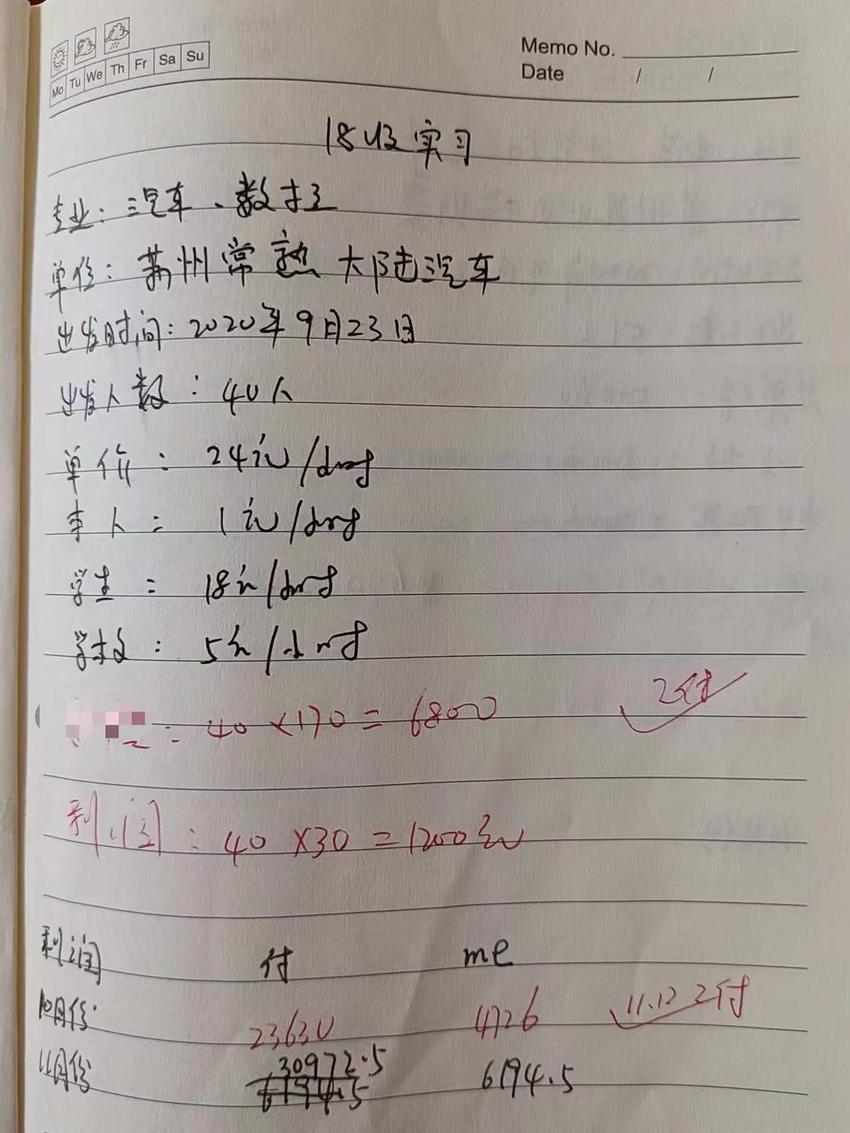 Memo No.
Mo Tu We Th Fr Sa Su
Date / /
18级实习
专业：汽车、数控
单位：苏州常熟大陆汽车
出发时间：2020年9月23日
出发人数：40人
单价：24元/小时
本人：1元/小时
学生：18元/小时
学校：5元/小时
：40×170=6800 已付
利润：40×30=1200元
利润 付 me
10月份 23630 4726 11.12已付
11月份 30972.5 6194.5
6194.5